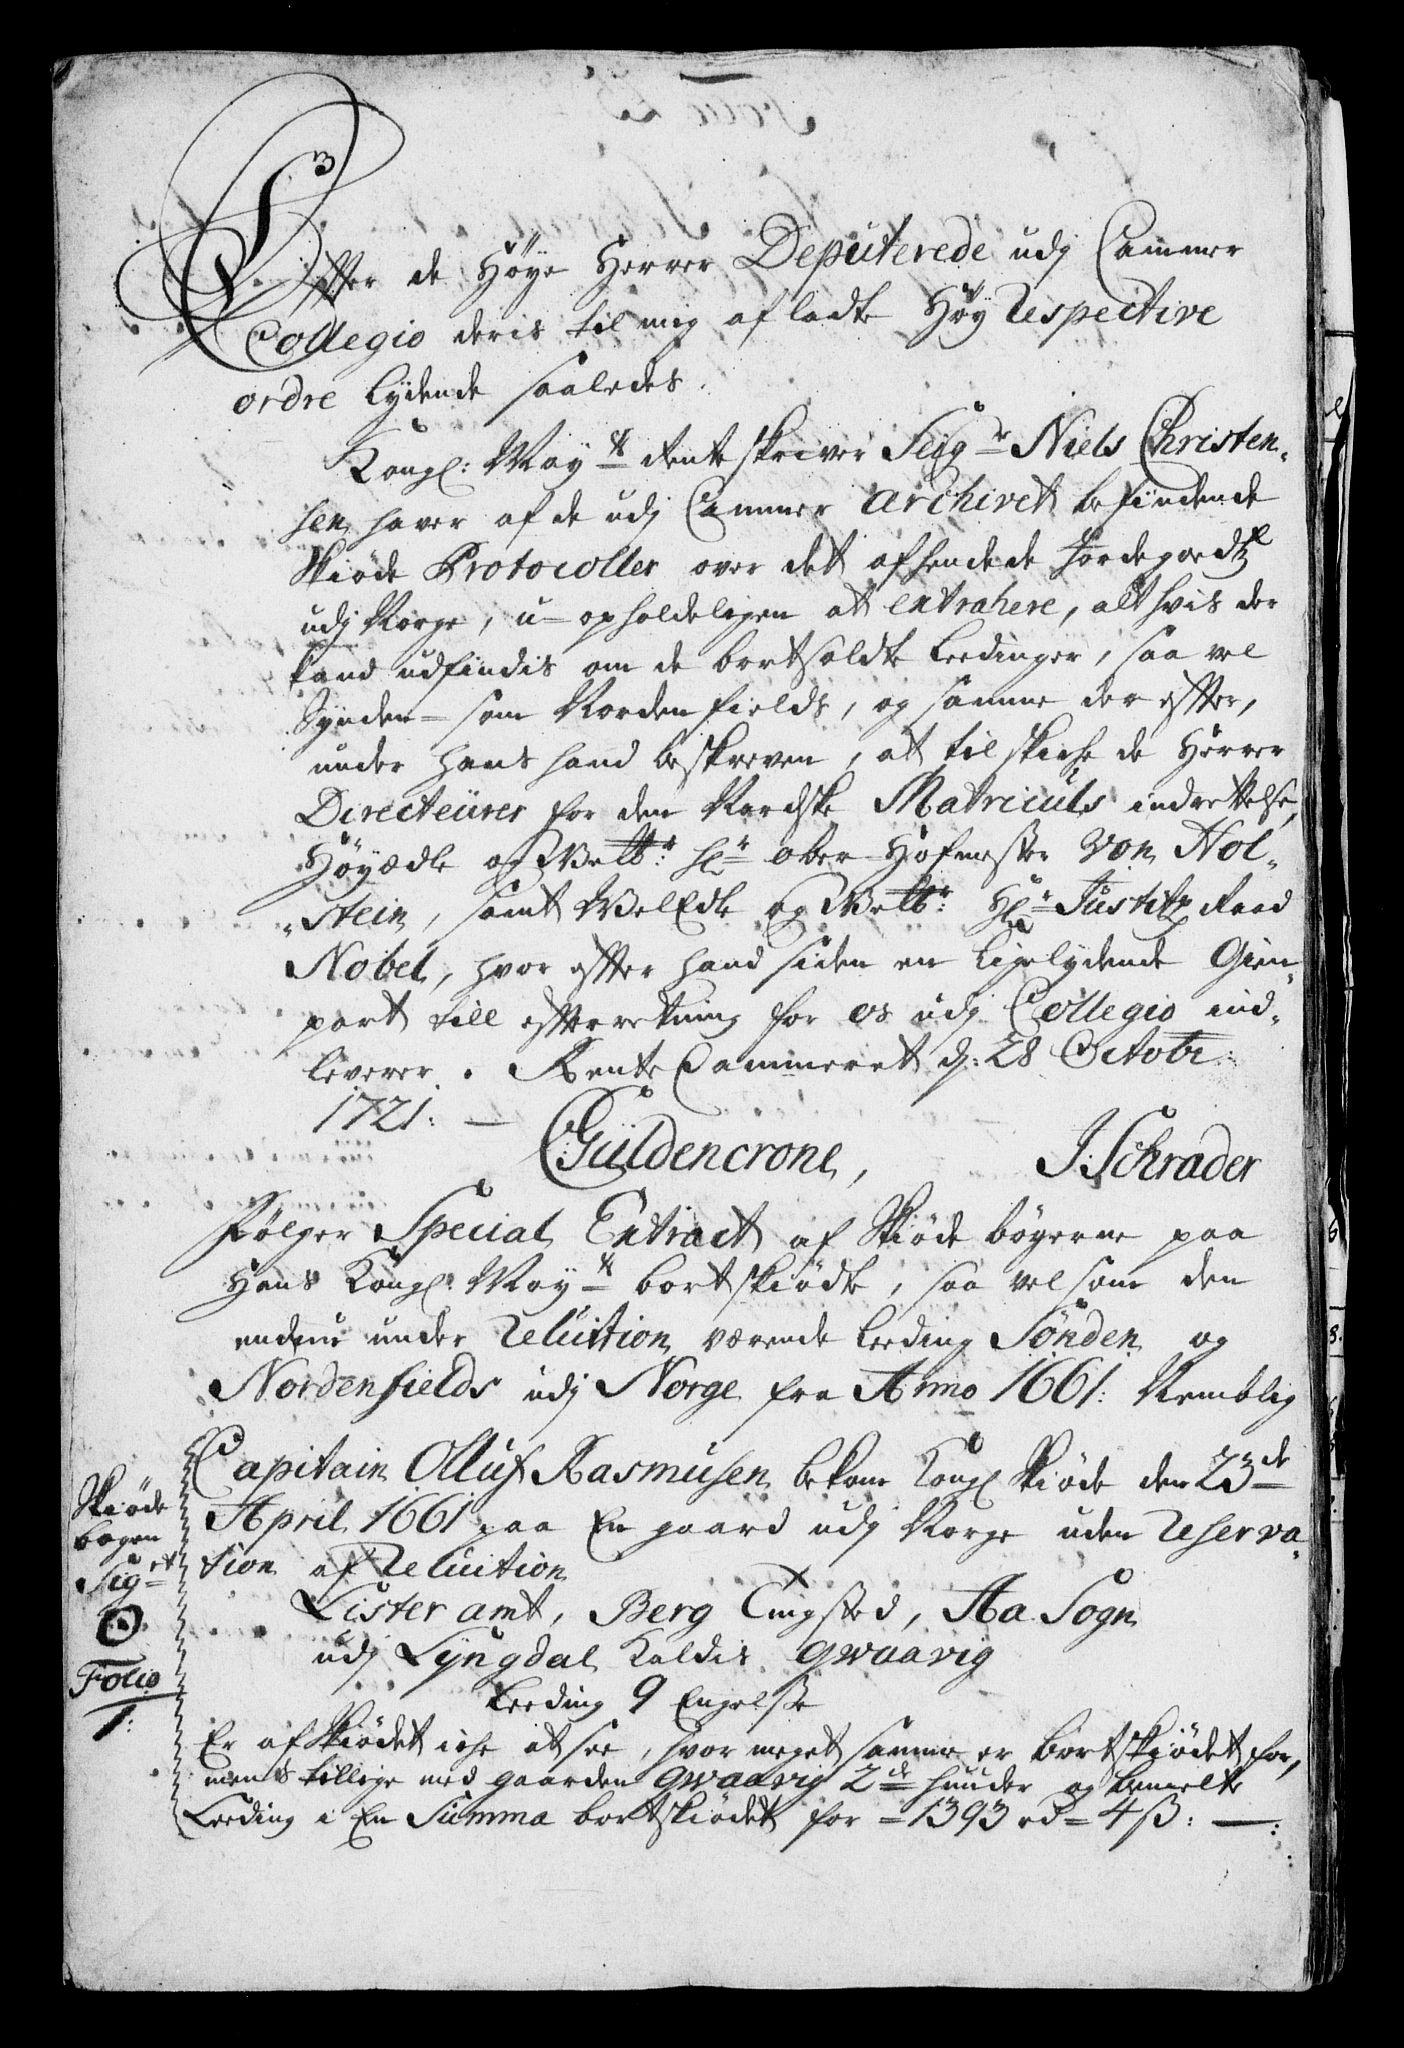 Efter de Høye Herrer Deputerede udj Cammer
Collegio deris til mig afladte Høy Respective
ordre lydende saaledes.
Kongl: May.tt Renteskriver Seig.r Niels Christen-
sen haver af de udj Cammer archivet befindende
Skiøde Protocoller over det afhendede Jordegoedtz
udj Norge, u-opholdeligen at extrahere, alt hvis der
kand udfindis om de bortsoldte Leedinger, saa vel
Synden- som Nordenfields, og samme der efter,
under hans haand beskreven, at tilskiche de Herrer
Directeurer for den Nordske Matriculs indrettelse,
Høyædle og Welb.r Hr ober Hofmester von Hol-
-stein, samt WelEdle og Welb.r Hr Justitz Raad
Nobel, hvor efter hand siden en ligelydende Gien-
part till efterretning for os udj Collegio ind-
leverer. Rente Cammeret d: 28 Octobr:
1721. —
Güldencrone, J: Schrader
Følger Special Extract af Skiøde bøgerne paa
Hans Kongl: May.tt bortskiødte, saa vel som den
endnu under Reluition værende Leeding Sønden og
Nordenfields udj Norge fra Anno 1661: Nemblig
Capitain Olluf Rasmusen bekom Kongl Skiøde den 23de
April 1661 paa En gaard udj Norge uden Reserva-
tion af Reluition
Skiøde
bogen
Sig.et
Folio
1:
Lister amt, Berg Tingsted, Aa Sogn
udj Lyngdal Kaldis Qwaavig
Leeding 9 Engelske
Er af Skiødet iche at see, hvor meget samme er bortskiødet for,
mens tillige med gaarden Qwaavig 2de hunder og bemelte
Leeding i En Summa bortskiødet for = 1393 rd = 4 ß: —